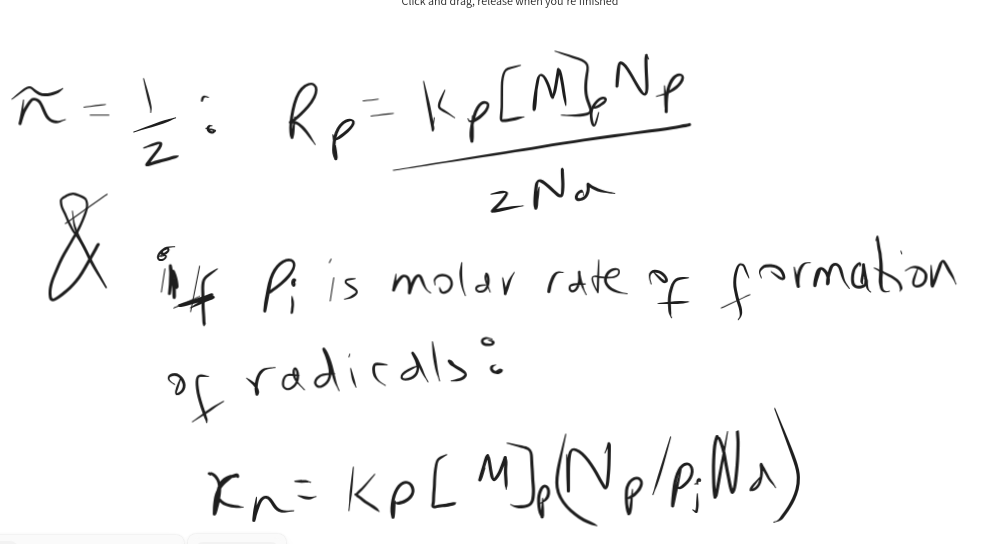 Click and drag, release when you're finished
ñ = 1/2 : Rp = kp[M]pNp / 2Na
&
if ρi is molar rate of formation
of radicals:
xn = kp[M]p(Np/ρiNa)